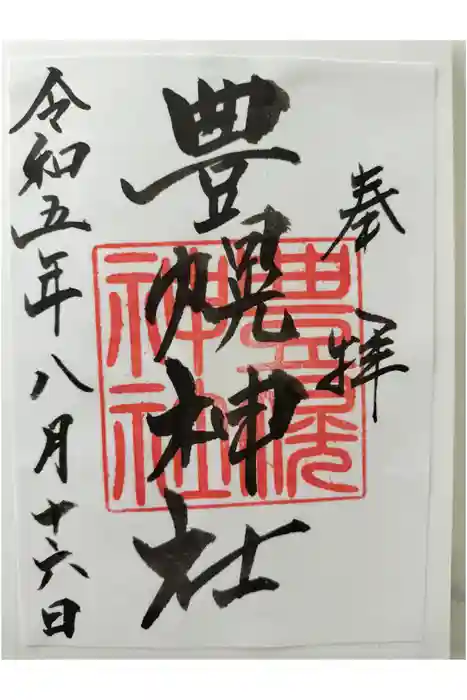 奉拝
豊幌神社
豊幌神社
令和五年八月十六日